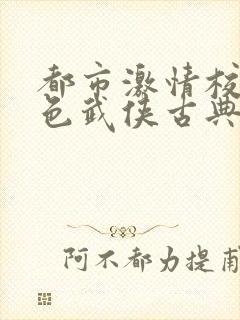 都市激情校
色武侠古典
阿不都力提甫